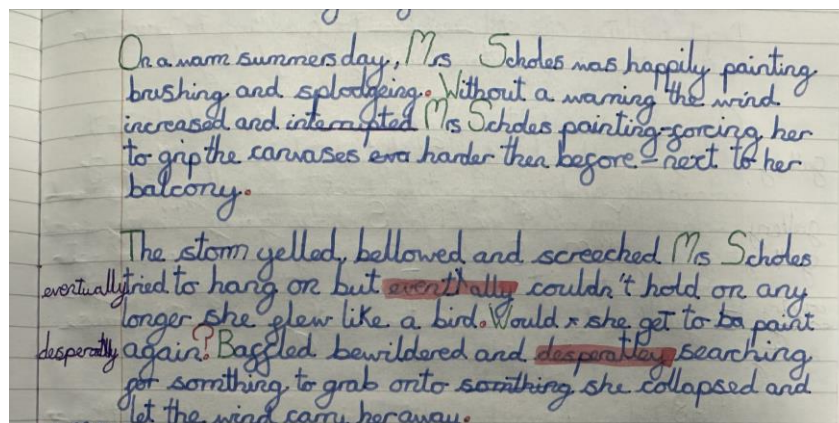 On a warm summers day, Mrs Scholes was happily painting
brushing and splodgeing. Without a warning the wind
increased and interrupted Mrs Scholes painting-forcing her
to grip the canvases eva harder then before - next to her
balcony.
The storm yelled, bellowed and screeched Mrs Scholes
eventually tried to hang on but eventhally couldn't hold on any
longer she flew like a bird. Would she get to paint
desperatly again? Baffled bewildered and desperatley searching
for somthing to grab onto somthing she collapsed and
let the wind carry her away.